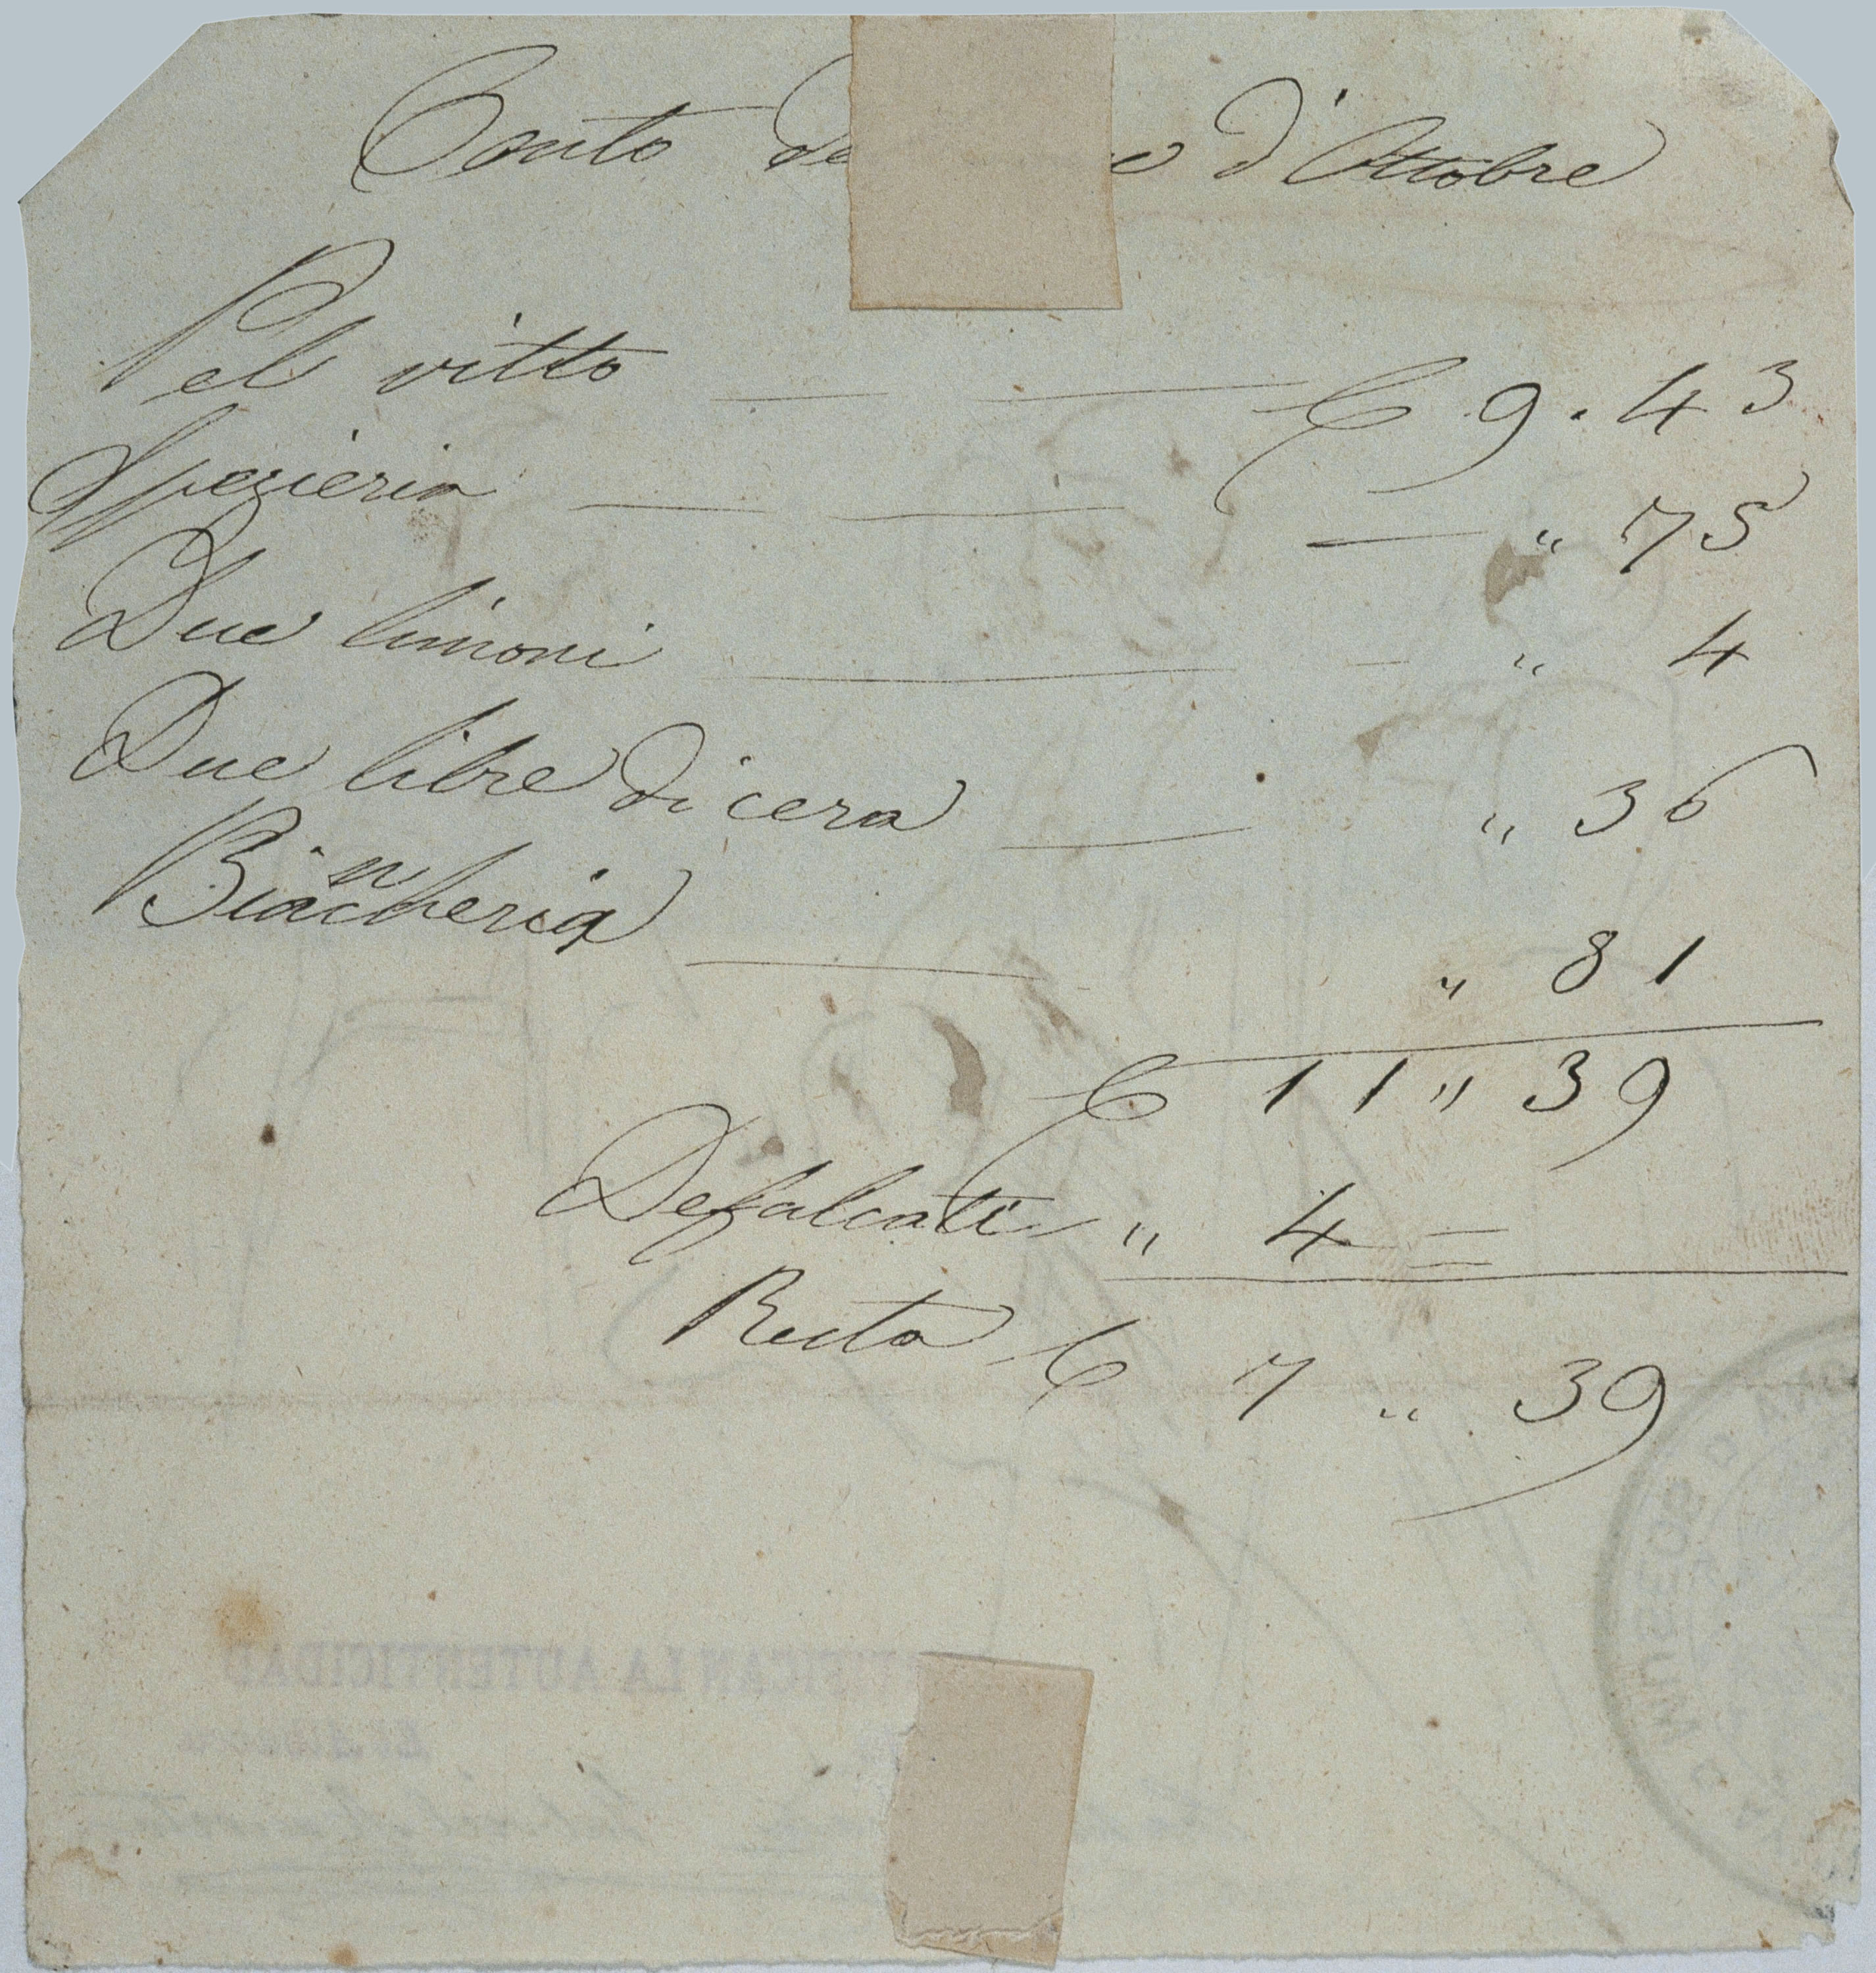 Conto de e d'Ottobre
Pel vitto £ 9. 43
Spezieria „ 75
Due limoni „ 4
Due libre di cera „ 36
Biancheria „ 81
£ 11 „ 39
Defalcati „ 4 =
Resta £ 7 „ 39
LA AUTENTICIDAD